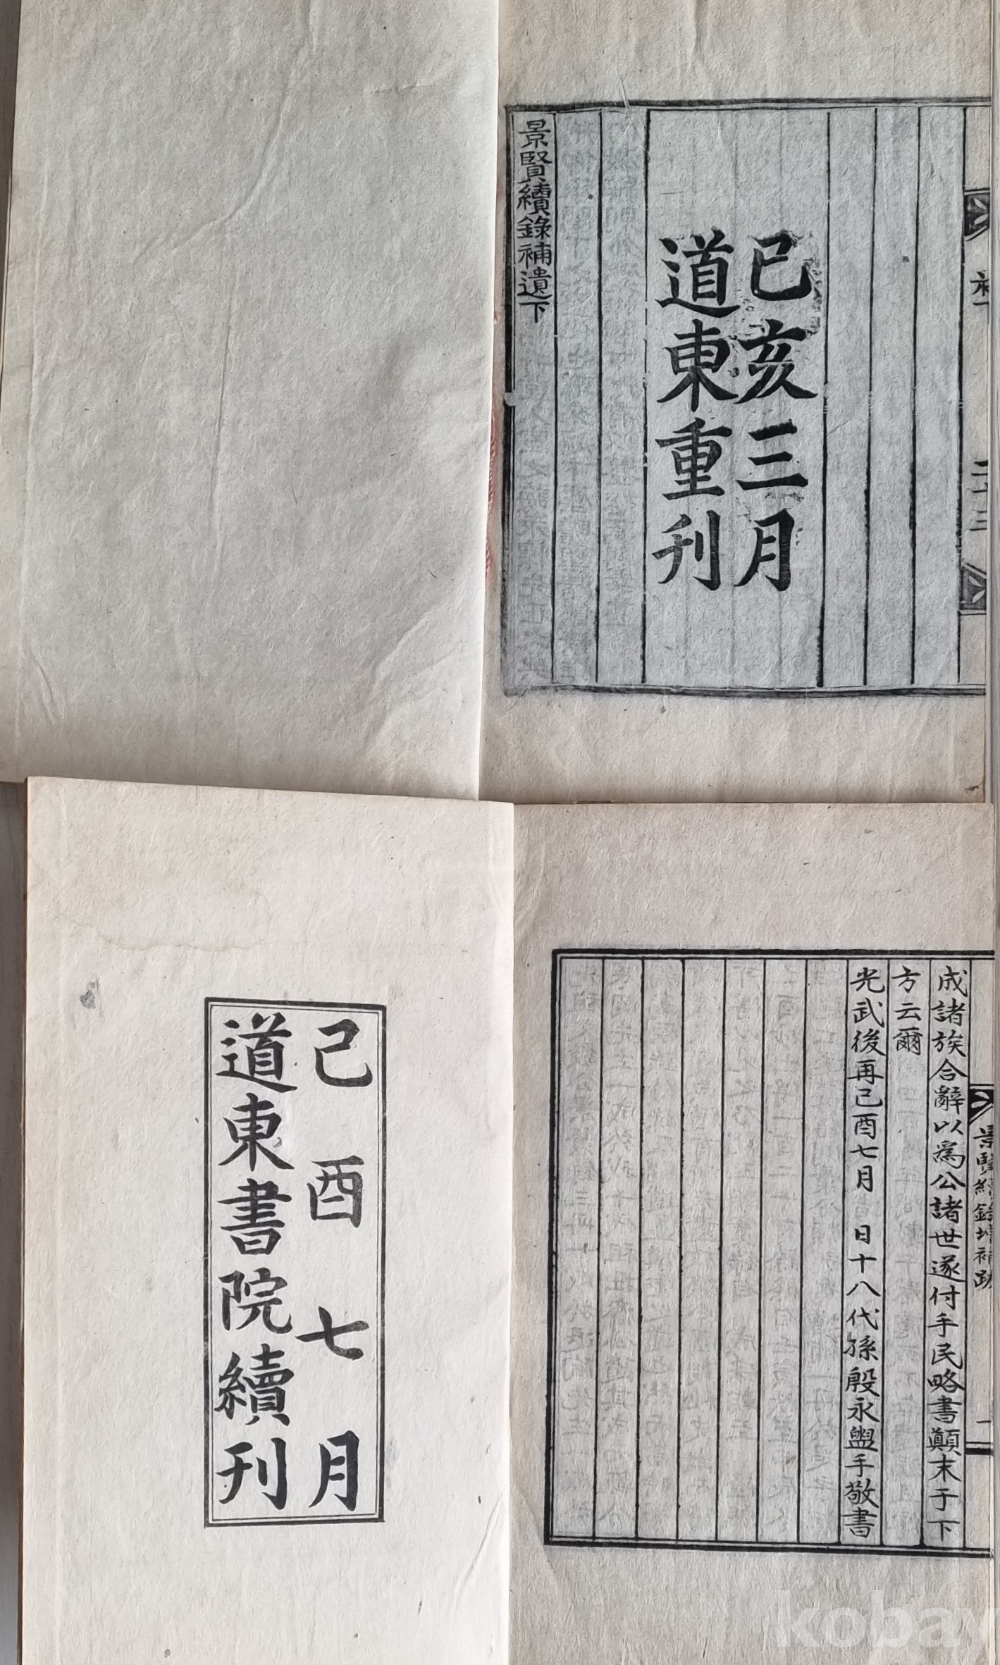 己亥三月
道東重刊
景賢續錄補遺下
成諸族合辭以爲公諸世遂付手民略書顚末于下
方云爾
光武後再己酉七月 日十八代孫殷永盥手敬書
己酉七月
道東書院續刊
kobay